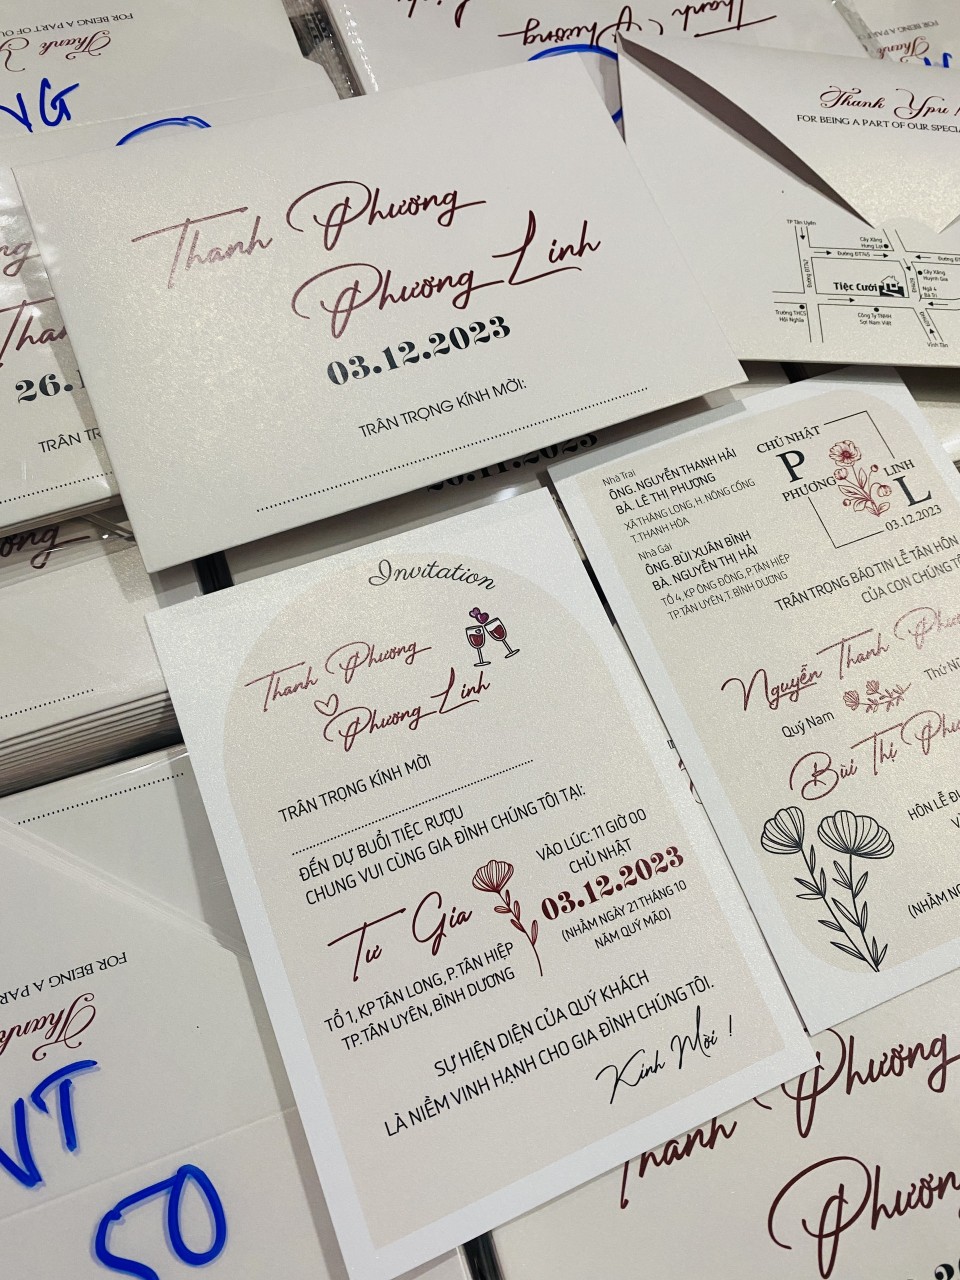 FOR BEING A PART OF OU
Thank
NG
Thanh Phương
Linh
Thanh Ypu
FOR BEING A PART OF OUR SPECIA
TP Tân Uyên
Cây Xăng
Hưng Lợi
Đường ĐT745
Đường ĐT747
Tiệc Cưới
Cây Xăng
Huỳnh Gia
Ngã 4
Bà Tri
Trường THCS
Hội Nghĩa
Công Ty TNHH
Sợi Nam Việt
Vĩnh Tân
Thanh Phương
Phương Linh
03.12.2023
TRÂN TRỌNG KÍNH MỜI:
26.1
TRÂN TR
26.11.2023
Invitation
Thanh Phương
Phương Linh
TRÂN TRỌNG KÍNH MỜI
ĐẾN DỰ BUỔI TIỆC RƯỢU
CHUNG VUI CÙNG GIA ĐÌNH CHÚNG TÔI TẠI:
Tư Gia
TỔ 1, KP TÂN LONG, P.TÂN HIỆP
TP.TÂN UYÊN, BÌNH DƯƠNG
VÀO LÚC: 11 GIỜ 00
CHỦ NHẬT
03.12.2023
(NHẰM NGÀY 21 THÁNG 10
NĂM QUÝ MÃO)
SỰ HIỆN DIỆN CỦA QUÝ KHÁCH
LÀ NIỀM VINH HẠNH CHO GIA ĐÌNH CHÚNG TÔI.
Kính Mời !
Nhà Trai
ÔNG. NGUYỄN THANH HẢI
BÀ. LÊ THỊ PHƯỢNG
XÃ THĂNG LONG, H. NÔNG CỐNG
T.THANH HÓA
Nhà Gái
ÔNG. BÙI XUÂN BÌNH
BÀ. NGUYỄN THỊ HẢI
TỔ 4, KP ÔNG ĐÔNG, P.TÂN HIỆP
TP.TÂN UYÊN, T. BÌNH DƯƠNG
CHỦ NHẬT
P
PHƯƠNG
LINH
L
03.12.2023
TRÂN TRỌNG BÁO TIN LỄ TÂN HÔN
CỦA CON CHÚNG TÔ
Nguyễn Thanh Phư
Quý Nam
Thứ Nữ
Bùi Thị Phư
HÔN LỄ Đ
(NHẰM NG
FOR BEING A PAR
Thank
VT
50
Thanh Phương
Phươn